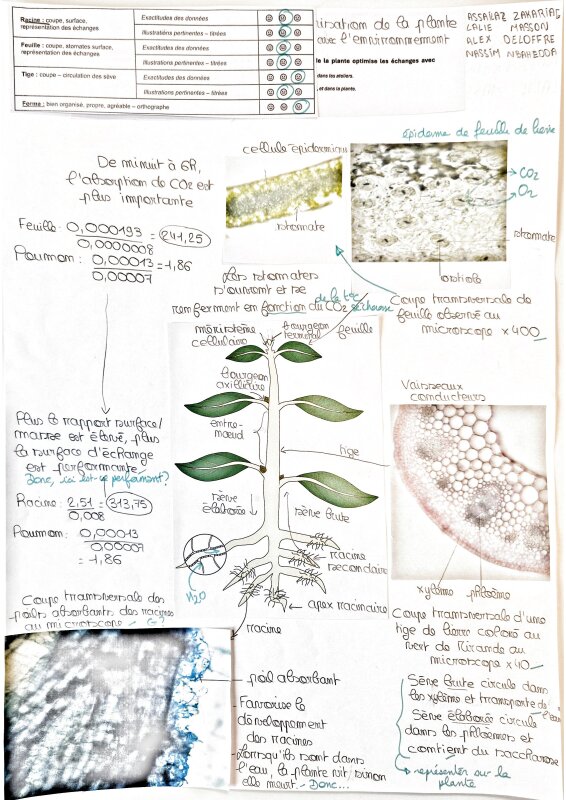 Racine : coupe, surface, représentation des échanges
Exactitudes des données
Illustrations pertinentes – titrées
Feuille : coupe, stomates surface, représentation des échanges
Exactitudes des données
Illustrations pertinentes – titrées
Tige : coupe – circulation des sève
Exactitudes des données
Illustrations pertinentes – titrées
Forme : bien organisé, propre, agréable – orthographe
isation de la plante
avec l'environnement
le la plante optimise les échanges avec
dans les ateliers.
, et dans la plante.
ASSAILAZ ZAKARIAE
LALIE MASSON
ALEX DELOFFRE
NASSIM
épiderme de feuille de lierre
cellule épidermique
stomate
CO2
O2
stomate
ostiole
De minuit à 6h,
l'absorption de CO2 est
plus importante
Feuille: 0,000193 = 241,25
0,0000008
Poumon: 0,00013 = 1,86
0,00007
Les stomates
s'ouvrent et se
renferment en fonction du CO2
de la t°c
sécheresse
Coupe transversale de
feuille observé au
microscope x400
méristème
cellulaire
bourgeon
terminal
feuille
bourgeon
axillaire
entre-
noeud
tige
sève
élaborée
sève brute
racine
secondaire
H2O
apex racinaire
racine
Plus le rapport surface/
masse est élevé, plus
la surface d'échange
est performante.
Donc, ici est-ce performant?
Racine: 2,51 = 313,75
0,008
Poumon: 0,00013
0,00007
= 1,86
Vaisseaux
conducteurs
xylème
phloème
Coupe transversale d'une
tige de lierre coloré au
vert de Mirande au
microscope x40
Coupe transversale des
poils absorbants des racines
au microscope - G?
poil absorbant
- Favorise le
développement
des racines
- Lorsqu'ils sont dans
l'eau, la plante vit, sinon
elle meurt. - Donc...
Sève brute circule dans
les xylème et transporte de l'eau
Sève élaborée circule
dans les phloèmes et
contient du saccharose
représenter sur la
plante